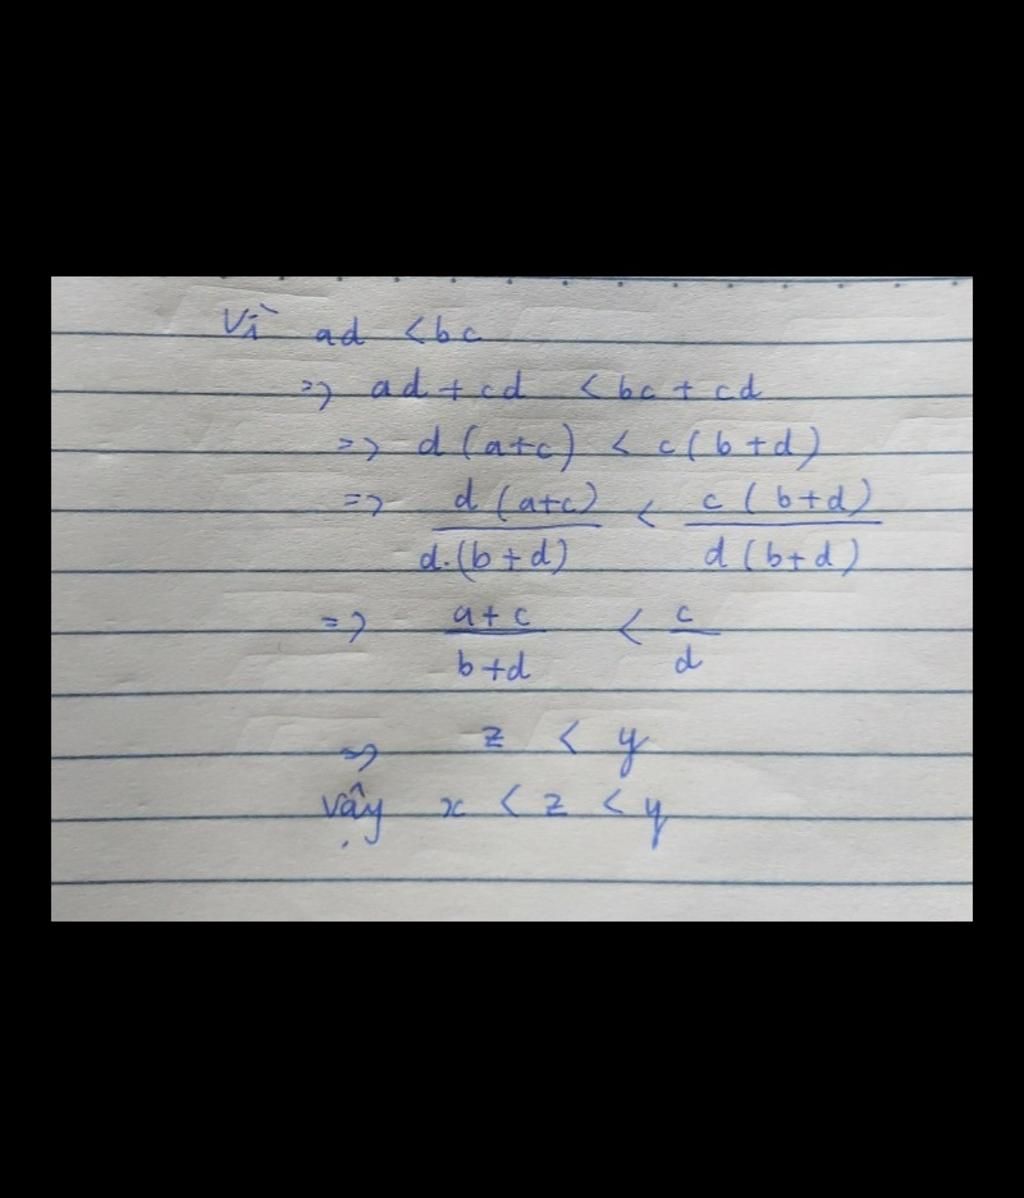 Vì ad < bc
=> ad + cd < bc + cd
=> d (a+c) < c ( b + d )
=> d (a+c) / d.(b + d) < c ( b+d ) / d ( b+d )
=> a + c / b + d < c / d
=> z < y
vậy x < z < y